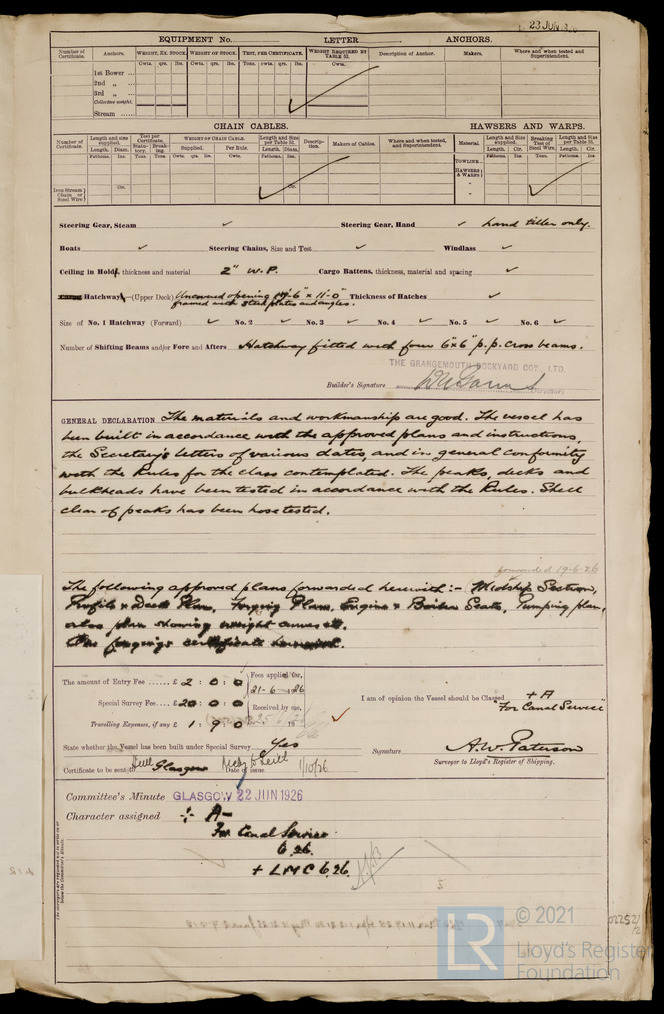 23 JUN
EQUIPMENT No. LETTER ANCHORS.
Number of Certificate. Anchors. WEIGHT, EX. STOCK. WEIGHT OF STOCK. TEST, PER CERTIFICATE. WEIGHT REQUIRED BY TABLE 53. Description of Anchor. Makers. Where and when tested and Superintendent.
Cwts. qrs. lbs. Cwts. qrs. lbs. Tons. cwts. qrs. lbs. Cwts.
1st Bower ...
2nd „ ...
3rd „ ...
Collective weight.
Stream ......
CHAIN CABLES. HAWSERS AND WARPS.
Number of Certificate. Length and size supplied. Test per Certificate. WEIGHT OF CHAIN CABLE. Length and size per Table 53. Description. Makers of Cables. Where and when tested, and Superintendent. Material. Length and Size supplied. Breaking Test of Steel Wire. Length and Size per Table 53.
Length. Diam. Statutory. Breaking. Supplied. Per Rule. Length. Diam. Length. Cir. Length. Cir.
Fathoms. Ins. Tons. Tons. Cwts. qrs. lbs. Cwts. Fathoms. Ins. TOWLINE Fathoms. Ins. Tons. Fathoms. Ins.
HAWSERS & WARPS
Iron Stream Chain or Steel Wire Cir. Cir.
Steering Gear, Steam Steering Gear, Hand hand tiller only.
Boats Steering Chains, Size and Test Windlass
Ceiling in Hold, thickness and material 2" W.P. Cargo Battens, thickness, material and spacing
Hatchway (Upper Deck) Uncovered opening 6" x 11'-0" Thickness of Hatches
framed with steel plates and angles.
Size of No. 1 Hatchway (Forward) No. 2 No. 3 No. 4 No. 5 No. 6
Number of Shifting Beams and/or Fore and Afters Hatchway fitted with four 6"x6" p.p. cross beams.
THE GRANGEMOUTH DOCKYARD COY., LTD.
Builder's Signature Director.
GENERAL DECLARATION The materials and workmanship are good. The vessel has
been built in accordance with the approved plans and instructions,
the Secretary's letters of various dates, and in general conformity
with the Rules for the class contemplated. The peaks, decks and
bulkheads have been tested in accordance with the Rules. Shell
clear of peaks has been hose tested.
forwarded 19-6-26
The following approved plans forwarded herewith:- Midship Section,
Profile & Deck Plan, Forging Plan, Engine & Boiler Seats, Pumping plan,
also plan showing weight curves etc.
forgings certificate herewith.
The amount of Entry Fee ...... £ 2 : 0 : 0 Fees applied for,
21-6-1926
Special Survey Fee .... £20 : 0 : 0 Received by me,
Travelling Expenses, if any £ 1 : 9 : 0 19
I am of opinion the Vessel should be Classed + A
"For Canal Service"
State whether the Vessel has been built under Special Survey Yes
Signature A.W. Paterson
Surveyor to Lloyd's Register of Shipping.
Certificate to be sent to Glasgow Date of issue 1/10/26
Committee's Minute GLASGOW 22 JUN 1926
Character assigned + A-
For Canal Service
6.26.
+ LMC 6.26.
5
© 2021
LR
Lloyd's Register
Foundation